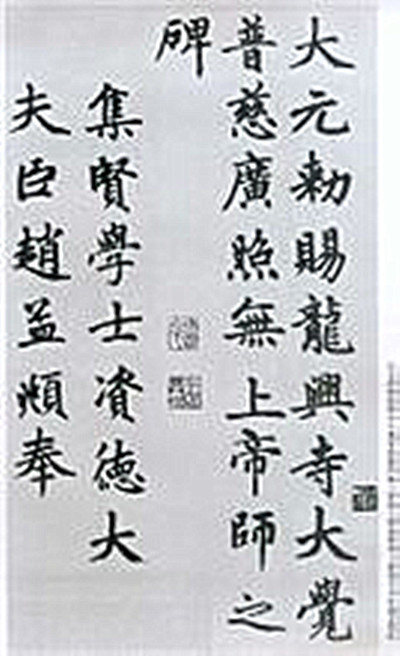 大元勅賜龍興寺大覺
普慈廣照無上帝師之
碑
集賢學士資德大
夫臣趙孟頫奉